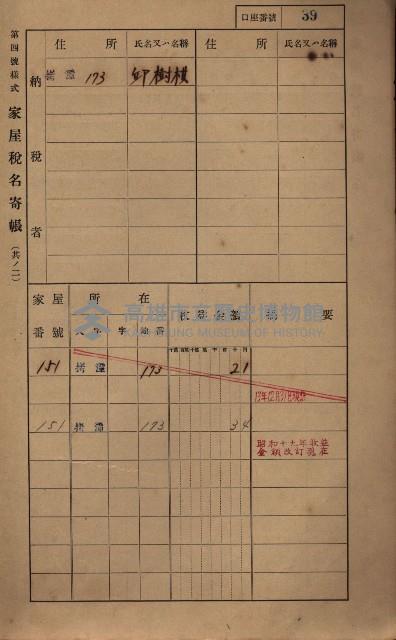 口座番號 39
第四號樣式 家屋稅名寄帳 (共ノ二)
住所 氏名又ハ名稱 住所 氏名又ハ名稱
納稅者
拷潭 173 邱樹棋
家屋番號 所在 收益金額 摘要
大字 字 地番
151 拷潭 173 21
151 拷潭 173 34
昭和十九年收益
金額改訂現在
高雄市立歷史博物館
KAOHSIUNG MUSEUM OF HISTORY